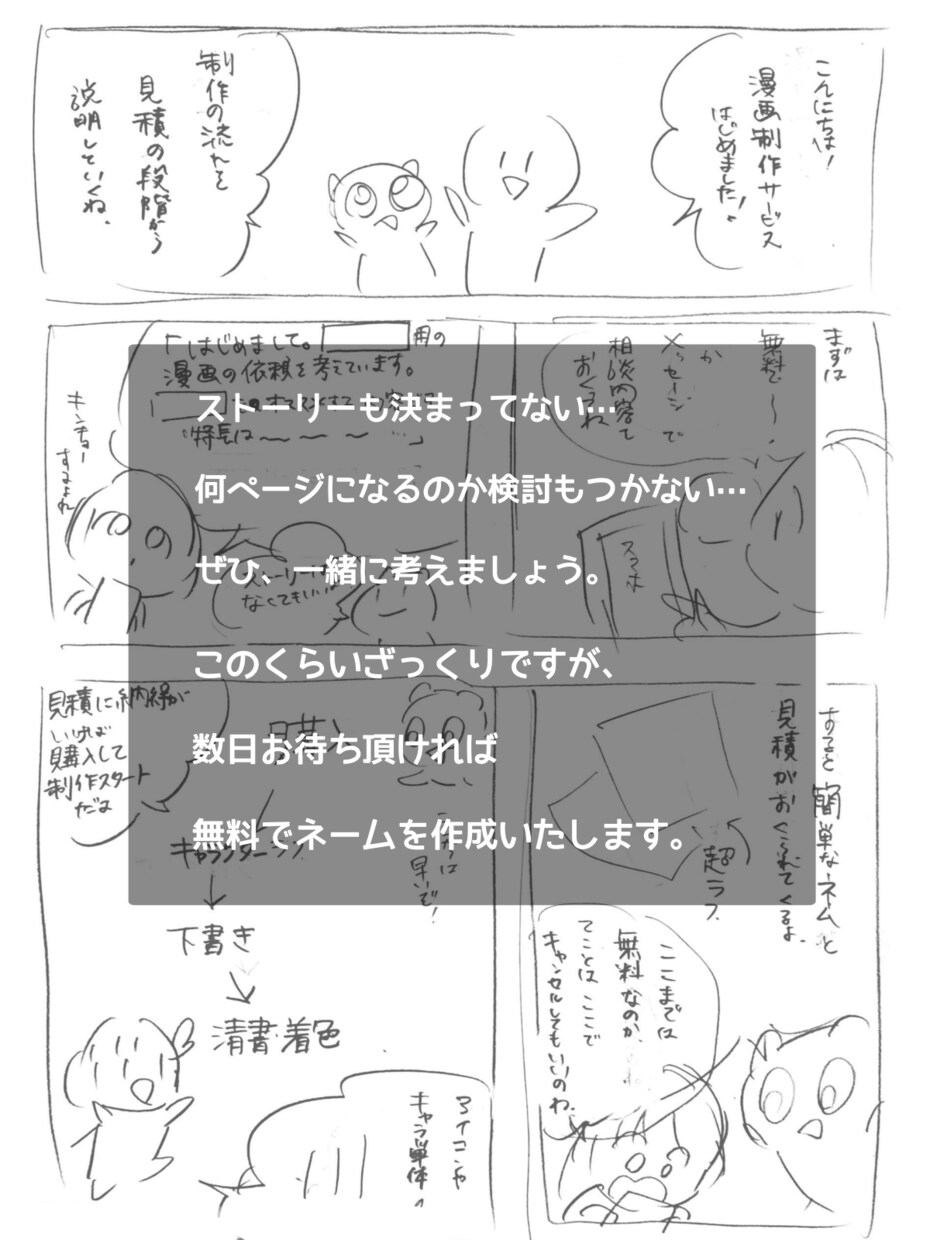 こんにちは!
漫画制作サービス
はじめました!
制作の流れを
見積の段階から
説明していくね、
まずは
無料で〜!
か
メッセージで
相談内容を
おくるね
「はじめまして。
用の
漫画の依頼を考えています。
特長は〜〜〜…」
キンチョー
するよね
ストーリーは
なくてもいい
スマホ
ストーリーも決まってない…
何ページになるのか検討もつかない…
ぜひ、一緒に考えましょう。
このくらいざっくりですが、
数日お待ち頂ければ
無料でネームを作成いたします。
すると簡単なネームと
見積がおくられてくるよ、
超ラフ
ここまでは
無料なのか、
てことはここで
キャンセルしてもいいのね、
見積に納得が
いけば
購入して
制作スタート
だよ
購入
キャラクターラフ
早いぞ!
下書き
清書・着色
アイコンや
キャラ単体